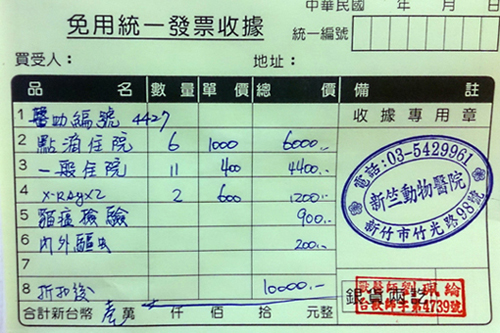 中華民國 年 月
免用統一發票收據
統一編號
買受人： 地址：
品名 數量 單價 總價 備註
1 醫助編號 4427 收據專用章
2 點滴住院 6 1000 6000.-
3 一般住院 11 400 4400.-
4 X-RAYX2 2 600 1200.-
5 貓瘟檢驗 900.-
6 內外驅虫 200.-
7
8 折扣後 10000.- 銀貨兩訖
合計新台幣 壹萬 仟 佰 拾 元整
電話：03-5429961
新竺動物醫院
新竹市竹光路98號